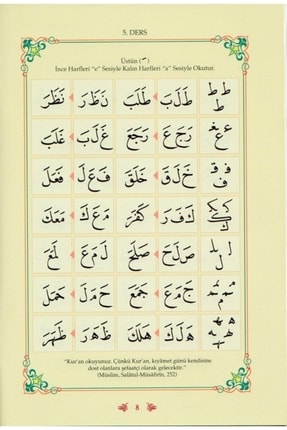 5. DERS
Üstün (َ)
İnce Harfleri "e" Sesiyle Kalın Harfleri "a" Sesiyle Okutur.
ط ط ط طَ لَ بَ طَلَبَ نَ ظَ رَ نَظَرَ
ع ع غ رَ جَ عَ رَجَعَ غَ لَ بَ غَلَبَ
ف ق ف خَ لَ قَ خَلَقَ فَ عَ لَ فَعَلَ
كَ فَ رَ كَفَرَ مَ عَ كَ مَعَكَ
صَ لَ حَ صَلَحَ لَ مَ عَ لَمَعَ
جَ مَ عَ جَمَعَ حَ مَ لَ حَمَلَ
هَ لَ كَ هَلَكَ ظَ هَ رَ ظَهَرَ
"Kur'an okuyunuz. Çünkü Kur'an, kıyâmet günü kendisine
dost olanlara şefaatçi olarak gelecektir."
(Müslim, Salâtü'l-Müsâfirîn, 252)
8